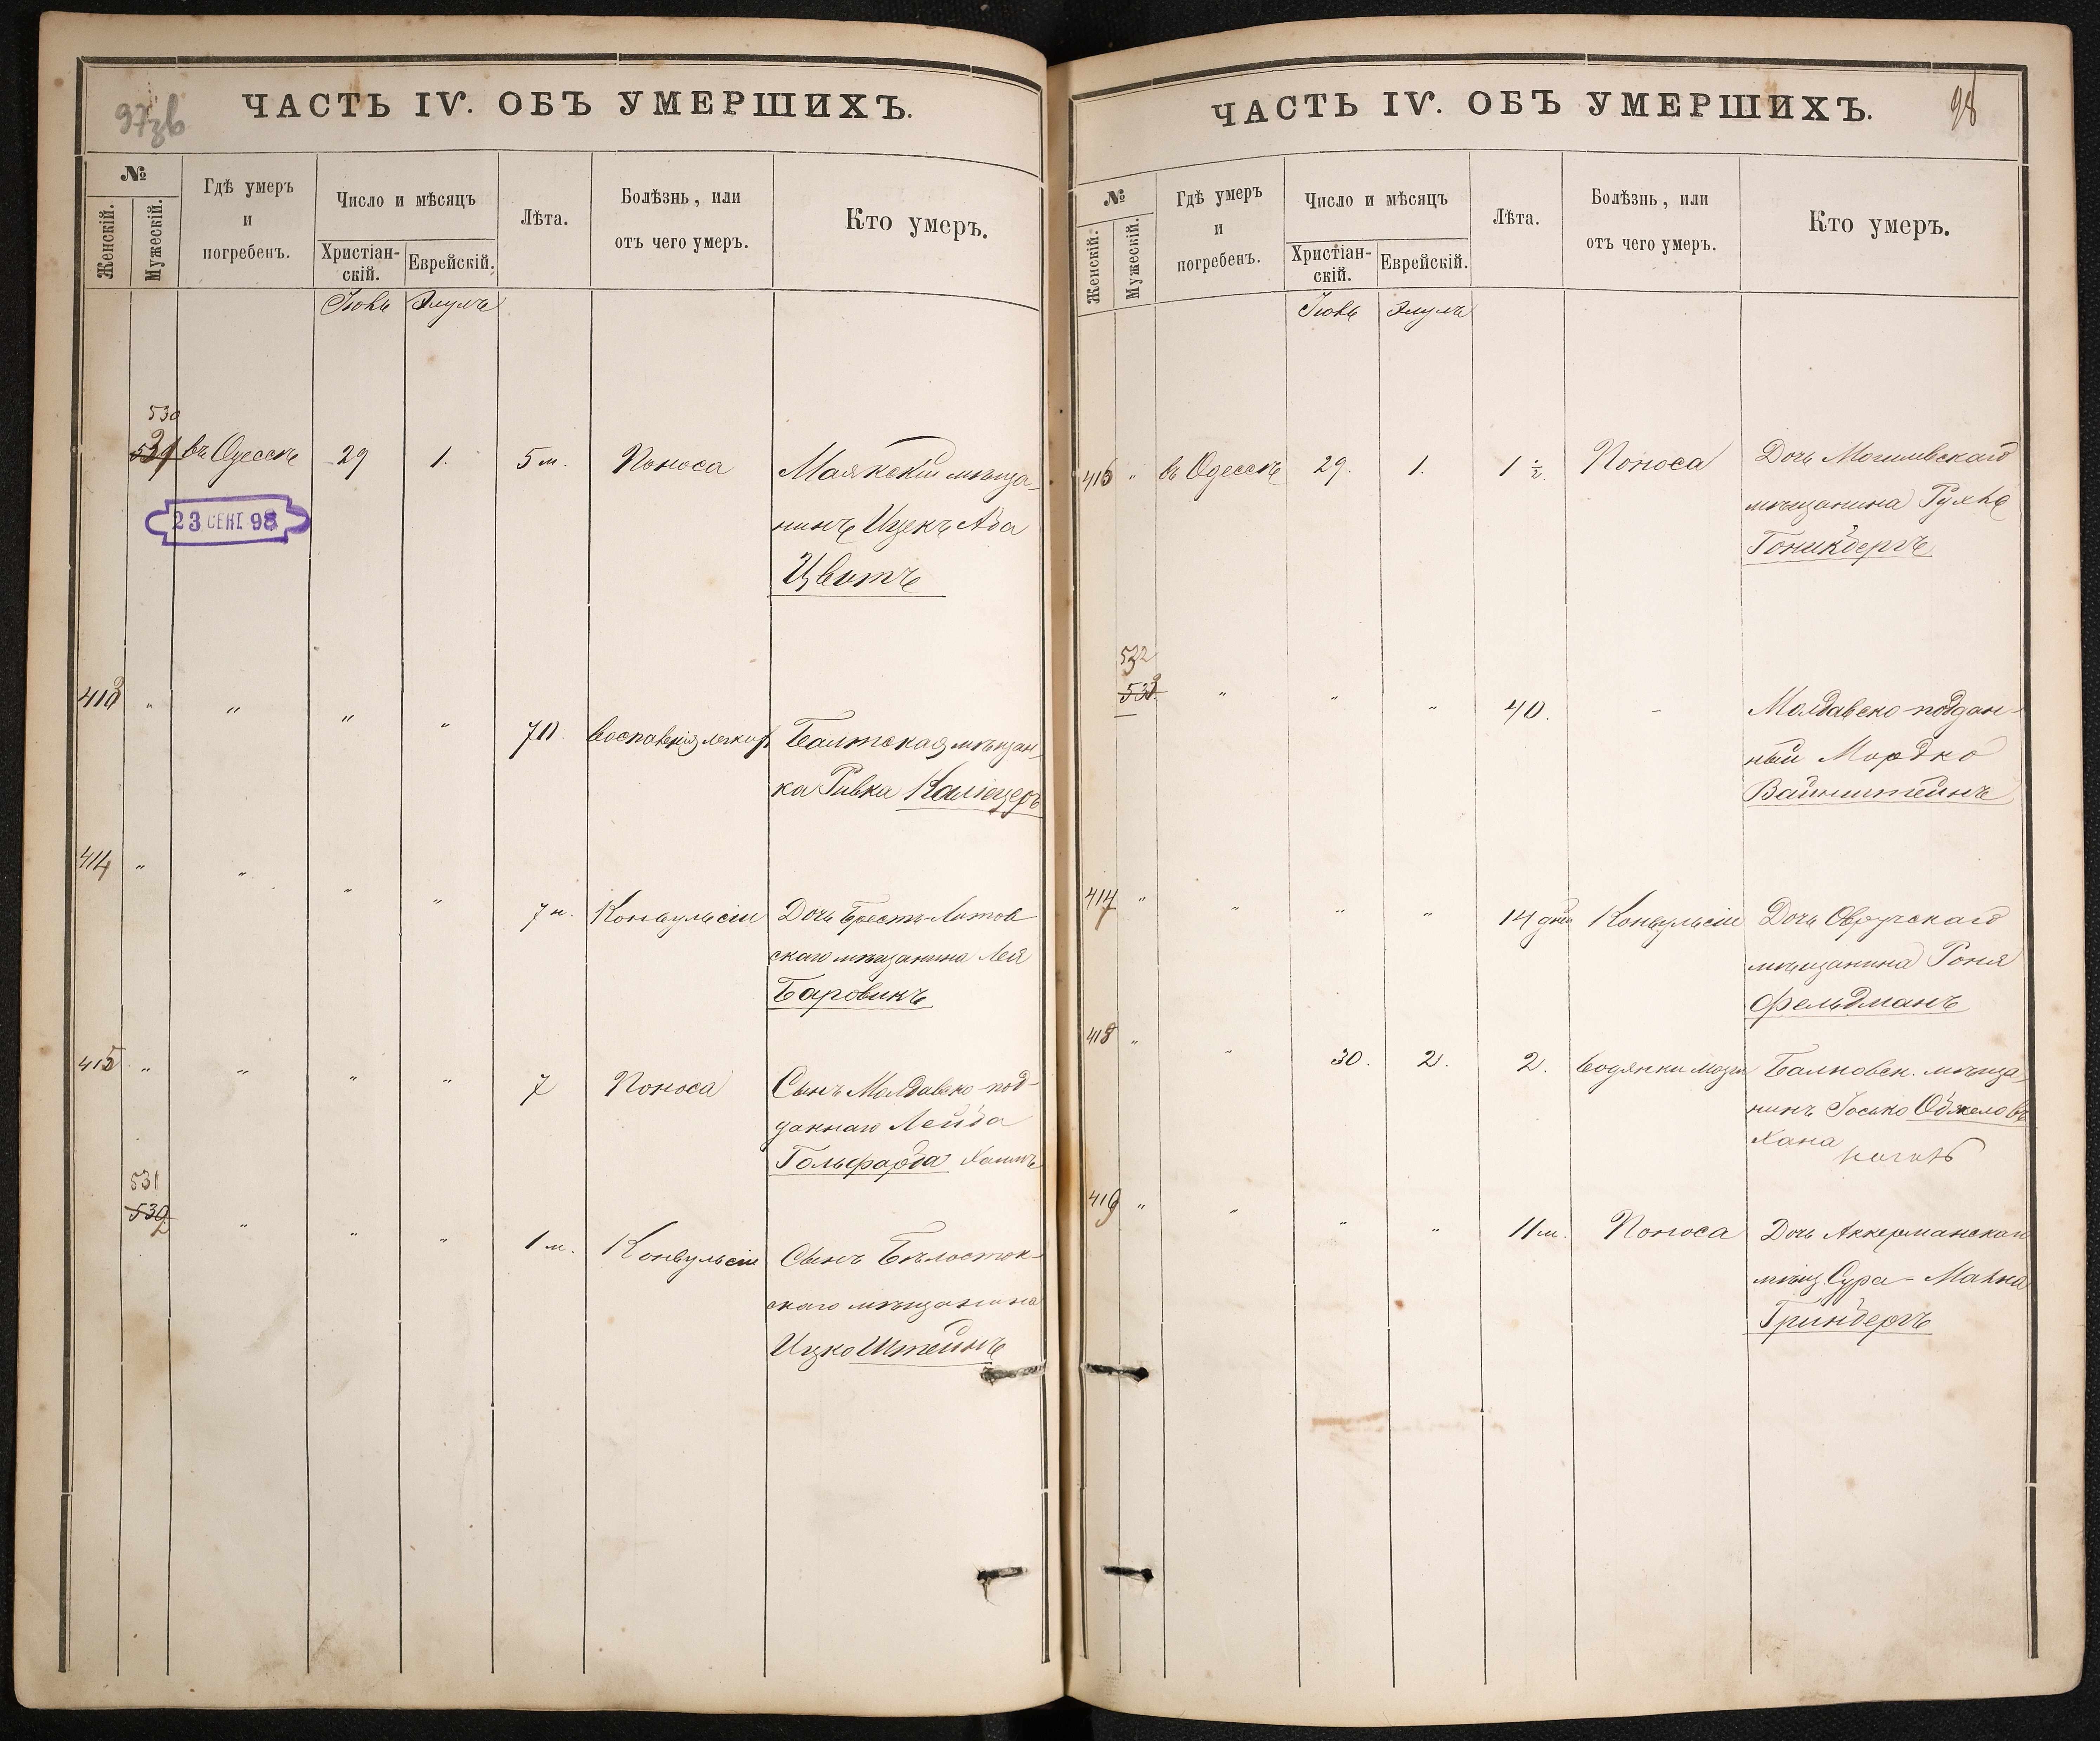 97зв
ЧАСТЬ IV. ОБЪ УМЕРШИХЪ.
№
Женскій.
Мужескій.
Гдѣ умеръ
и
погребенъ.
Число и мѣсяцъ
Христіан-
скій.
Еврейскій.
Лѣта.
Болѣзнь, или
отъ чего умеръ.
Кто умеръ.
Іюль Элулъ
530
въ Одессѣ 29 1. 5 м. Поноса Маякскій мѣща-
нинъ Ицекъ Аба
Цвитъ
23 СЕНТ. 98
413 " " " " 70. Воспаленія легкихъ Балтская мѣщан-
ка Ривка
414 " " " " 7 н. Конвульсіи Дочь Брестъ-Литов
скаго мѣщанина Лея
Баровикъ
415 " " " " 7 Поноса Сынъ Молдавско-под-
даннаго Лейба
Гольфарба
531
" " " 1 м. Конвульсіи Сынъ Бѣлосток-
скаго мѣщанина
Ицко Штейнъ
ЧАСТЬ IV. ОБЪ УМЕРШИХЪ.
98
№
Женскій.
Мужескій.
Гдѣ умеръ
и
погребенъ.
Число и мѣсяцъ
Христіан-
скій.
Еврейскій.
Лѣта.
Болѣзнь, или
отъ чего умеръ.
Кто умеръ.
Іюль Элулъ
416 " въ Одессѣ 29. 1. 1 ½. Поноса Дочь Могилевскаго
мѣщанина Рухль
Гоникбергъ
532
" " " 40. - Молдавско-поддан-
ный Мордко
Вайнштейнъ
417 " " " " 14 дней Конвульсіи Дочь Овручскаго
мѣщанина Роня
Фельдманъ
418 " " 30. 2. 2. Водянки мозга мѣща-
нинъ Іосько
Хана
419 " " " " 11 м. Поноса Дочь Аккерманскаго
мѣщ. Сура-Малка
Гринбергъ